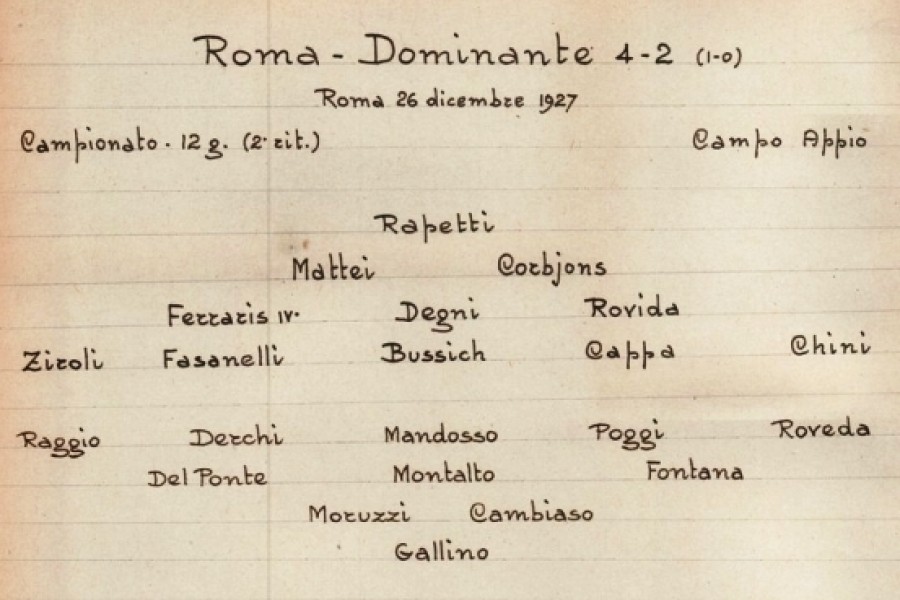 Roma - Dominante 4-2 (1-0)
Roma 26 dicembre 1927
Campionato. 12 g. (2ª rit.) Campo Appio
Rapetti
Mattei Corbjons
Ferraris IV. Degni Rovida
Ziroli Fasanelli Bussich Cappa Chini
Raggio Derchi Mandosso Poggi Roveda
Del Ponte Montalto Fontana
Moruzzi Cambiaso
Gallino